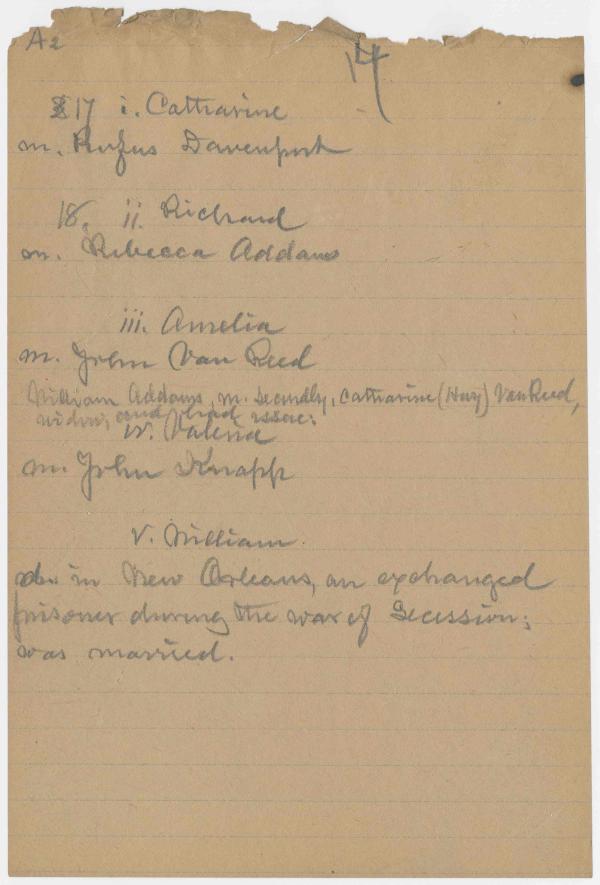 A2
14
17 i. Catharine
m. Rufus Davenport
18. ii. Richard
m. Rebecca Addams
iii. Amelia
m. John Van Reed
William Addams, m. secondly, Catharine (Huy) Van Reed,
widow, and had issue:
iv. Valeria
m. John Knapp
v. William
d. in New Orleans, an exchanged
prisoner during the war of Secession;
was married.